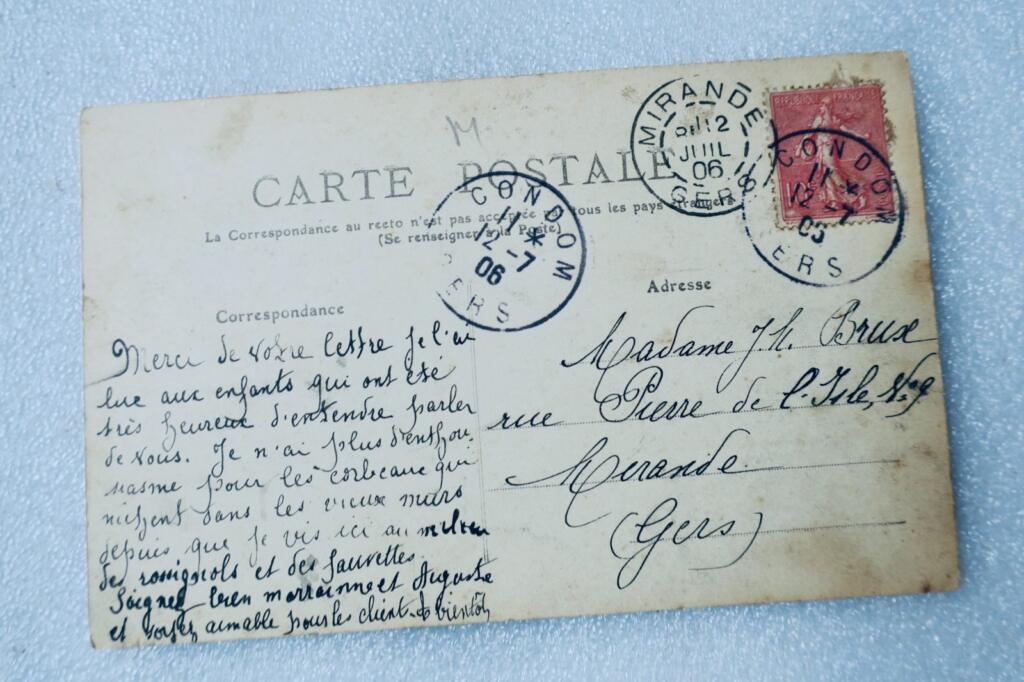 M
CARTE POSTALE
La Correspondance au recto n'est pas acceptée par tous les pays étrangers
(Se renseigner à la Poste)
MIRANDE
12
JUIL
06
GERS
CONDOM
11 *
12 -7
06
GERS
CONDOM
11 *
12 -7
06
ERS
Correspondance
Merci de votre lettre je l'ai
lue aux enfants qui ont été
très heureux d'entendre parler
de vous. Je n'ai plus d'enthou-
siasme pour les corbeaux qui
nichent dans les vieux murs
depuis que je vis ici au milieu
des rossignols et des fauvettes.
Soignez bien marrainne et Auguste
et soyez aimable pour les client à bientôt
Adresse
Madame J. H. Brux
rue Pierre de l'Isle, No 9
Mirande
(Gers)